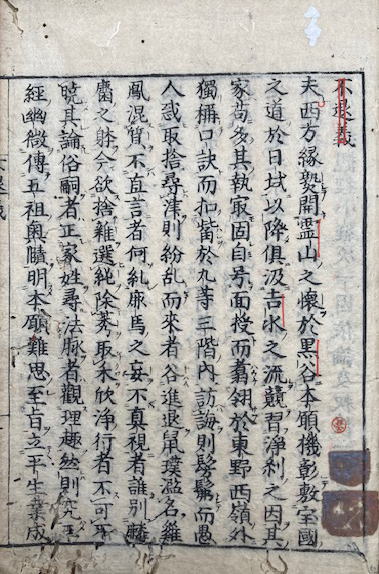 不退義
夫西方緣發開靈山之懷於黑谷本願機彰敷室國
之道於日域以降俱汲吉水之流競習淨刹之因其
家苟多其執寂固自号面授而翥翎於東野西嶺外
獨稱口訣而扣當於九等三階內訪誨則髣髴而愚
人或取捨尋湊則紛乱而來者谷進退鼠璞濫名雞
鳳混質不直言者何糺鹿馬之妄不真視者誰別麟
麏之躰今欲捨雜選純除莠取禾欣淨行者不可不
曉其論俗嗣者正家姓尋法脉者觀理趣然則究
經幽微傳五祖奧賾明本願難思至旨之平生業成